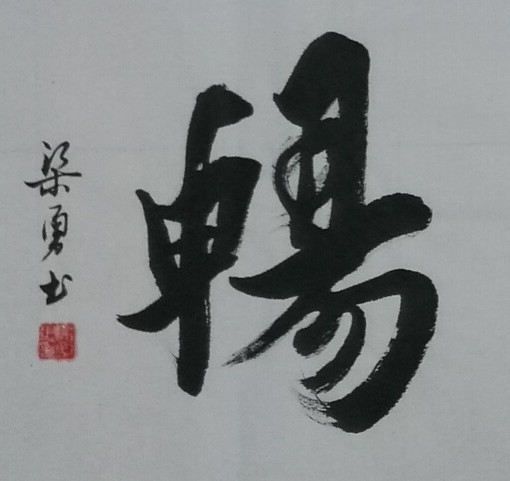 暢
梁勇书